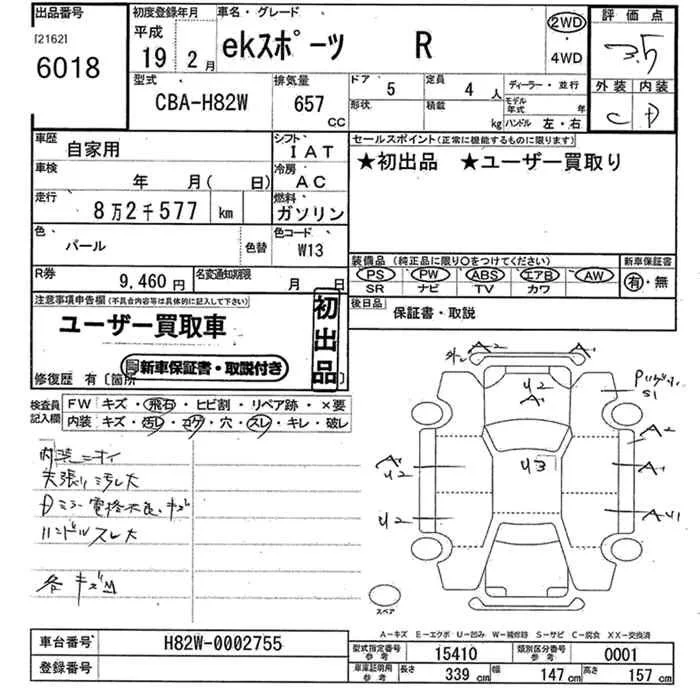 出品番号
[2162]
6018
初度登録年月
平成
19 2月
車名・グレード
ekスポーツ R
2WD
・
4WD
評価点
3.5
外装 内装
C D
型式
CBA-H82W
排気量
657
CC
ドア 5
形状
定員 4 人
積載 kg
ディーラー・並行
モデル年式 年
ハンドル 左・右
車歴
自家用
シフト
IAT
車検
年 月( 日)
冷房
AC
走行
8万2千577 km
燃料
ガソリン
色
パール
色替
色コード
W13
R券
9,460 円
名変通知期限
月 日
セールスポイント(正常に機能するものに限ります)
★初出品 ★ユーザー買取り
装備品(純正品に限り○をつけてください)
PS PW ABS エアB AW
SR ナビ TV カワ
新車保証書
有・無
後日品
保証書・取説
注意事項申告欄(不具合内容等は具体的に記入して下さい)
ユーザー買取車
初出品
新車保証書・取説付き
修復歴 有〔箇所
検査員記入欄
FW キズ・飛石・ヒビ割・リペア跡・×要
内装 キズ・汚レ・コゲ・穴・スレ・キレ・破レ
内装ニオイ
天張り汚レ大
Dミラー電格不良、キズ
ハンドルスレ大
各キズ
A1
A1
U2
A1
U3
S1
A2
A1
A1
U2
U2
AU1
スペア
A-キズ E-エクボ U-凹み W-補修跡 S-サビ C-腐食 XX-交換済
車台番号
H82W-0002755
登録番号
型式指定番号
参考
15410
類別区分番号
参考
0001
車庫証明用
参考
長さ 339 cm
幅 147 cm
高さ 157 cm